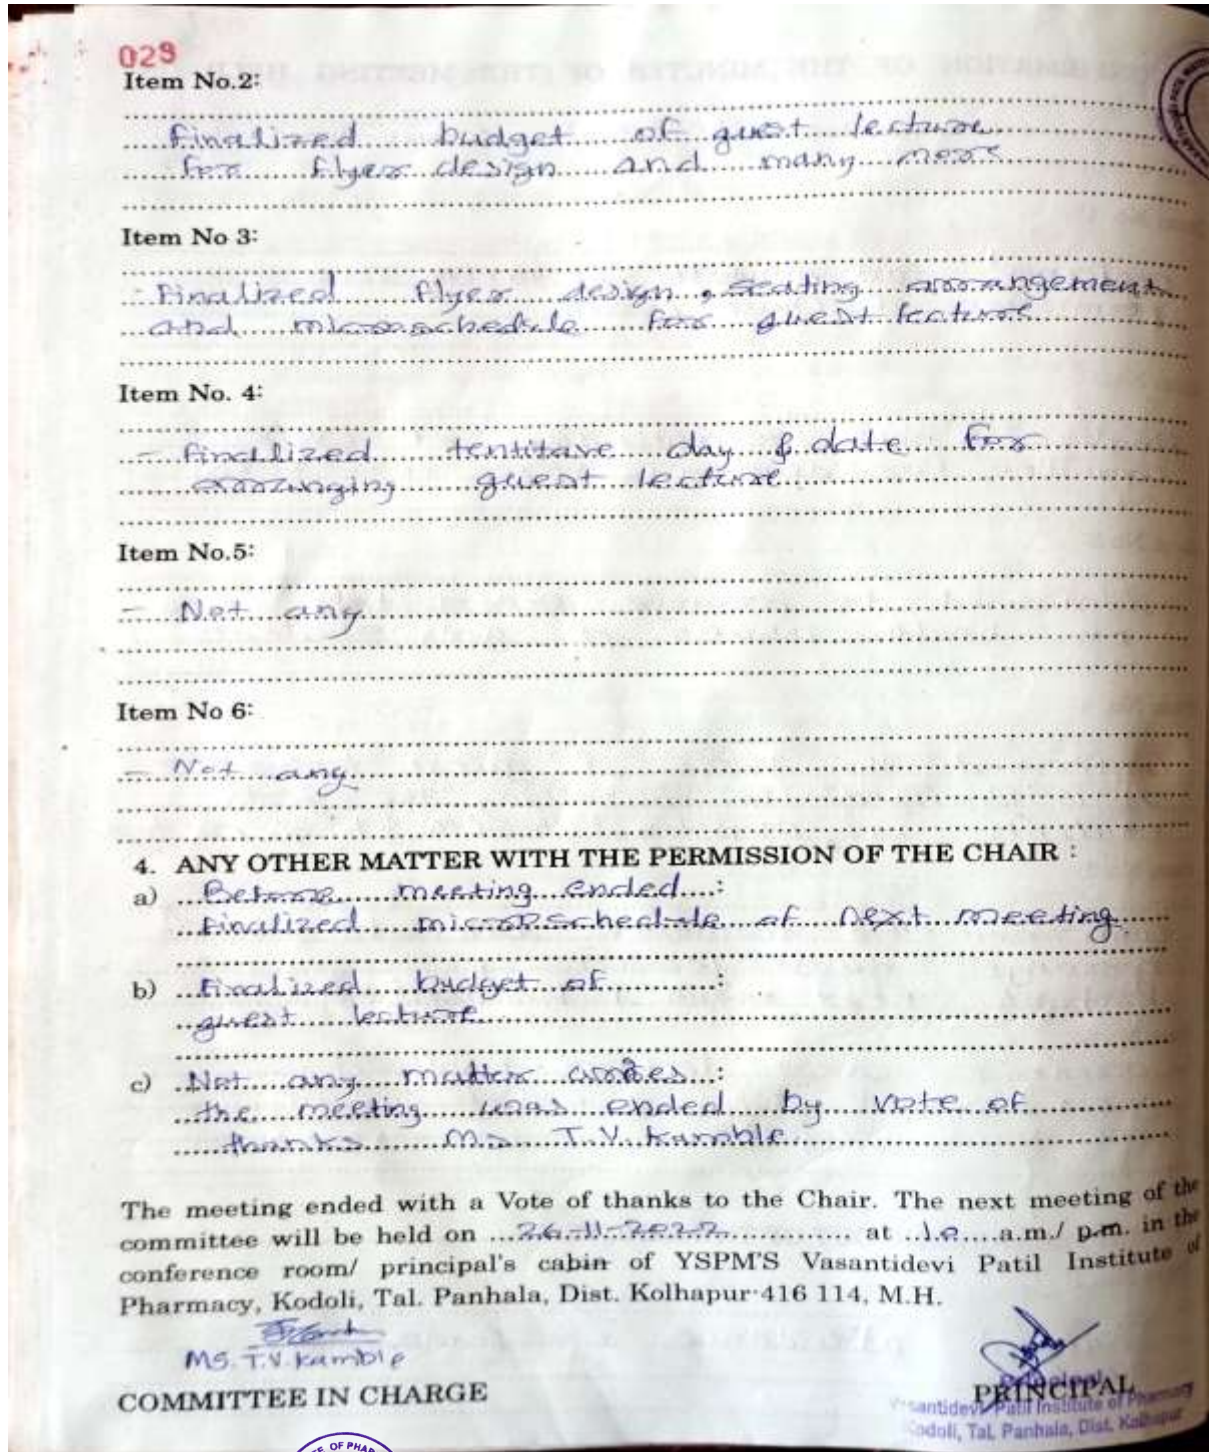 029
Item No.2:
Finalized budget of guest lecture
for flyer design and many more
Item No 3:
- Finalized flyer design, Seating arrangement
and microschedule for guest lecture
Item No. 4:
- finalized tentitave day & date for
arranging guest lecture
Item No.5:
- Not any
Item No 6:
- Not any
4. ANY OTHER MATTER WITH THE PERMISSION OF THE CHAIR :
a) Before meeting ended :
finalized microschedule of next meeting
b) Finalized budget of :
guest lecture
c) Not any matter arises :
the meeting was ended by vote of
thanks Ms. T.V. Kamble
The meeting ended with a Vote of thanks to the Chair. The next meeting of the
committee will be held on 26-11-2022 at 10 a.m./ p.m. in the
conference room/ principal's cabin of YSPM'S Vasantidevi Patil Institute of
Pharmacy, Kodoli, Tal. Panhala, Dist. Kolhapur-416 114, M.H.
MS. T.V. Kamble
COMMITTEE IN CHARGE
PRINCIPAL
Principal
Vasantidevi Patil Institute of Pharmacy
Kodoli, Tal. Panhala, Dist. Kolhapur
OF PHAR